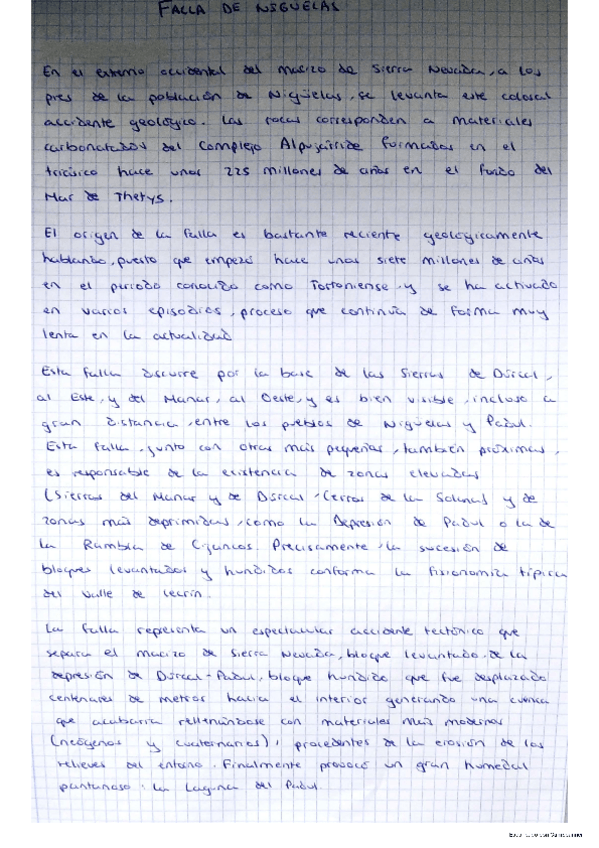 FALLA DE NIGUELAS
En el extremo occidental del macizo de Sierra Nevada, a los
pies de la población de Nigüelas, se levanta este colosal
accidente geológico. Las rocas corresponden a materiales
carbonatados del Complejo Alpujárride formadas en el
triásico hace unos 225 millones de años en el fondo del
Mar de Thetys.
El origen de la falla es bastante reciente geológicamente
hablando, puesto que empezó hace unos siete millones de años
en el periodo conocido como Tortoniense y se ha activado
en varios episodios, proceso que continúa de forma muy
lenta en la actualidad
Esta falla discurre por la base de las Sierras de Dúrcal,
al Este, y del Manar, al Oeste, y es bien visible, incluso a
gran distancia, entre los pueblos de Niguelas y Padul.
Esta falla, junto con otras más pequeñas, también próximas,
es responsable de la existencia de zonas elevadas
(Sierras del Manar y de Dúrcal, Cerros de la Solana) y de
zonas más deprimidas, como la Depresión de Padul o la de
la Rambla de Cijancos. Precisamente, la sucesión de
bloques levantados y hundidos conforma la fisionomía típica
del Valle de Lecrín.
La falla representa un espectacular accidente tectónico que
separa el macizo de Sierra Nevada, bloque levantado, de la
depresión de Dúrcal-Padul, bloque hundido que fue desplazado
centenares de metros hacia el interior generando una cuenca
que acabaría rellenándose con materiales más modernos
(neógenos y cuaternarios), procedentes de la erosión de los
relieves del entorno. Finalmente provocó un gran humedal
pantanoso: la Laguna del Padul.